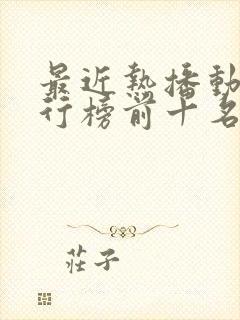 最近熱播動
行榜前十名
莊子